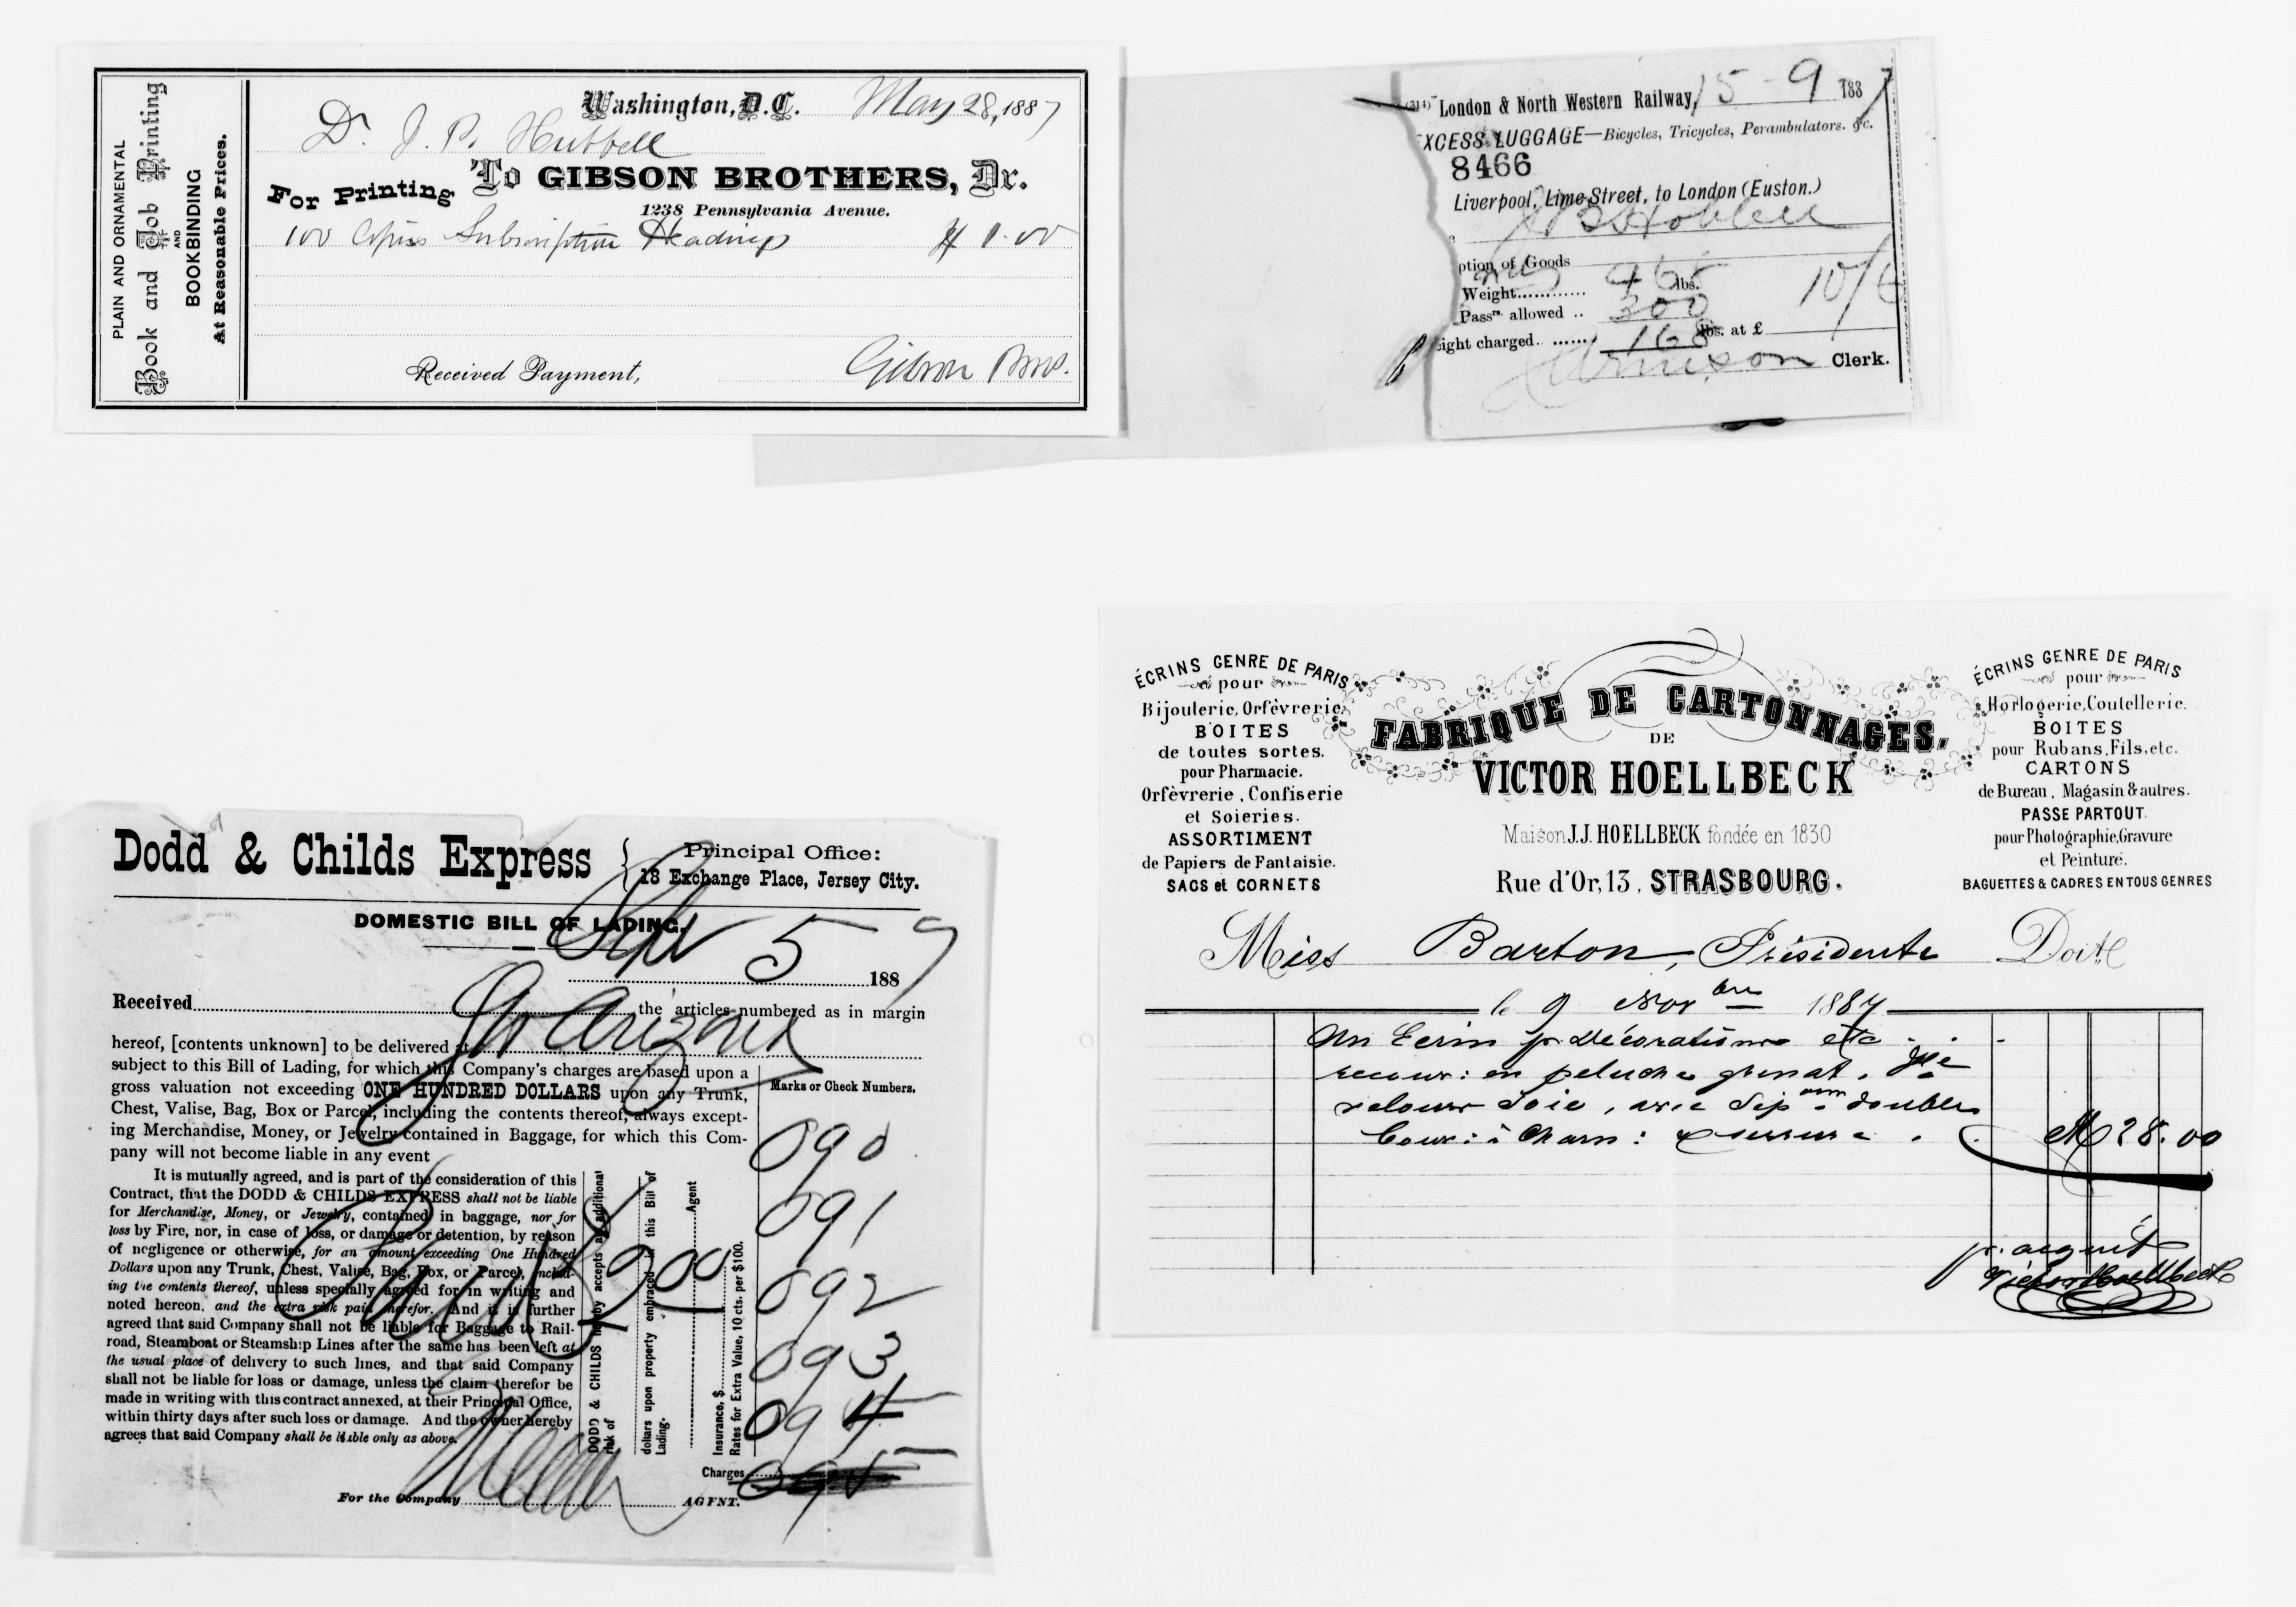 PLAIN AND ORNAMENTAL
Book and Job Printing
AND
BOOKBINDING
At Reasonable Prices.
Washington, D. C. May 28, 1887
Dr. J. B. Hubbell
To GIBSON BROTHERS, Dr.
For Printing
1238 Pennsylvania Avenue.
100 Copies Subscription Headings $1.00
Received Payment, Gibson Bros.
(314) London & North Western Railway, 15-9 1887
XCESS LUGGAGE—Bicycles, Tricycles, Perambulators. &c.
8466
Liverpool, Lime Street, to London (Euston.)
ption of Goods
Weight............ 468 lbs. 10/6
Passrs allowed .. 300
ight charged. ...... 168 lbs. at £
Clerk.
Dodd & Childs Express
Principal Office:
18 Exchange Place, Jersey City.
DOMESTIC BILL OF LADING.
Sept 5 1887
Received the articles numbered as in margin
hereof, [contents unknown] to be delivered at Str Arizona
subject to this Bill of Lading, for which this Company's charges are based upon a
gross valuation not exceeding ONE HUNDRED DOLLARS upon any Trunk,
Chest, Valise, Bag, Box or Parcel, including the contents thereof, always except-
ing Merchandise, Money, or Jewelry contained in Baggage, for which this Com-
pany will not become liable in any event
It is mutually agreed, and is part of the consideration of this
Contract, that the DODD & CHILDS EXPRESS shall not be liable
for Merchandise, Money, or Jewelry, contained in baggage, nor for
loss by Fire, nor, in case of loss, or damage or detention, by reason
of negligence or otherwise, for an amount exceeding One Hundred
Dollars upon any Trunk, Chest, Valise, Bag, Box, or Parcel, includ-
ing the contents thereof, unless specially agreed for in writing and
noted hereon, and the extra risk paid therefor. And it is further
agreed that said Company shall not be liable for Baggage to Rail-
road, Steamboat or Steamship Lines after the same has been left at
the usual place of delivery to such lines, and that said Company
shall not be liable for loss or damage, unless the claim therefor be
made in writing with this contract annexed, at their Principal Office,
within thirty days after such loss or damage. And the owner hereby
agrees that said Company shall be liable only as above.
Paid
$9.00
DODD & CHILDS hereby accepts an additional
risk of
dollars upon property embraced in this Bill of
Lading.
Agent
Insurance, $
Rates for Extra Value, 10 cts. per $100.
Marks or Check Numbers.
090
091
092
093
094
Charges 095
For the Company AGENT.
ÉCRINS GENRE DE PARIS
pour
Bijouterie, Orfèvrerie,
BOITES
de toutes sortes.
pour Pharmacie.
Orfèvrerie, Confiserie
et Soieries.
ASSORTIMENT
de Papiers de Fantaisie.
SACS et CORNETS
FABRIQUE DE CARTONNAGES,
DE
VICTOR HOELLBECK
Maison J.J. HOELLBECK fondée en 1830
Rue d'Or, 13, STRASBOURG.
ÉCRINS GENRE DE PARIS
pour
Horlogerie, Coutellerie.
BOITES
pour Rubans, Fils, etc.
CARTONS
de Bureau, Magasin & autres.
PASSE PARTOUT.
pour Photographie, Gravure
et Peinture.
BAGUETTES & CADRES EN TOUS GENRES
Miss Barton, Présidente Doit
le 9 Novbre 1887
Un Ecrin pr Décorations etc
recouv: en peluche grenat,
velours soie, avec double
M 28.00
pr. acquit
Victor Hoellbeck